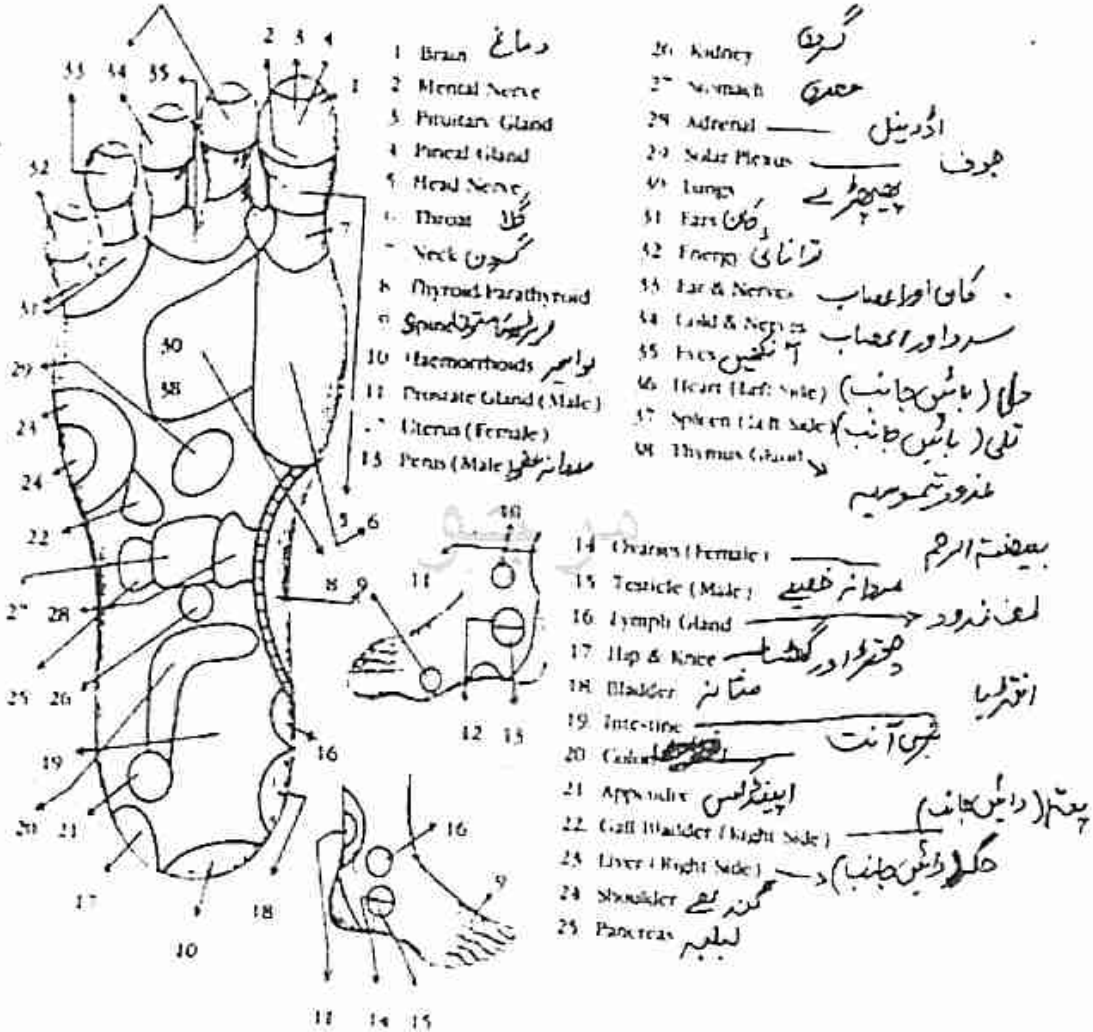 2 3 4
33 34 35
1
32
7
31
30
29
38
23
24
22
5 6
8 9
27
28
25 26
19
16
20 21
17
18
10
10
11
12 13
16
9
11 14 15
1 Brain دماغ
2 Mental Nerve
3 Pituitary Gland
4 Pineal Gland
5 Head Nerve
6 Throat گلا
7 Neck گردن
8 Thyroid Parathyroid
9 Spine
10 Haemorrhoids بواسیر
11 Prostate Gland (Male)
12 Uterus (Female)
13 Penis (Male)
26 Kidney
27 Stomach معدہ
28 Adrenal اڈرینل
29 Solar Plexus جوف
30 Lungs پھیپھڑے
31 Ears کان
32 Energy توانائی
33 Ear & Nerves کان اور اعصاب
34 Cold & Nerves سرد اور اعصاب
35 Eyes آنکھیں
36 Heart (Left Side) (بائیں جانب)
37 Spleen (Left Side) تلی (بائیں جانب)
38 Thymus Gland
غدود تیموسیہ
14 Ovaries (Female) بیضتہ الرحم
15 Testicle (Male) مردانہ خصیے
16 Lymph Gland لمف غدود
17 Hip & Knee
18 Bladder مثانہ
19 Intestine انتڑیا
20 Colon بڑی آنت
21 Appendix اپینڈکس
22 Gall Bladder (Right Side) پتہ (دائیں جانب)
23 Liver (Right Side) جگر (دائیں جانب)
24 Shoulder کندھے
25 Pancreas لبلبہ